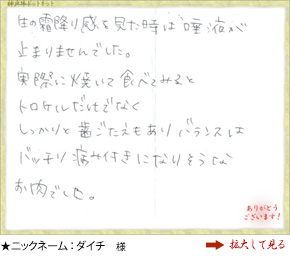 神戸牛ドットネット
生の霜降り感を見た時は唾液が
止まりませんでした。
実際に焼いて食べてみると
トロケルだけでなく
しっかりと歯ごたえもあり バランスは
バッチリ病み付きになりそうな
お肉でした。
ありがとう
ございます!
★ニックネーム:ダイチ 様
拡大して見る